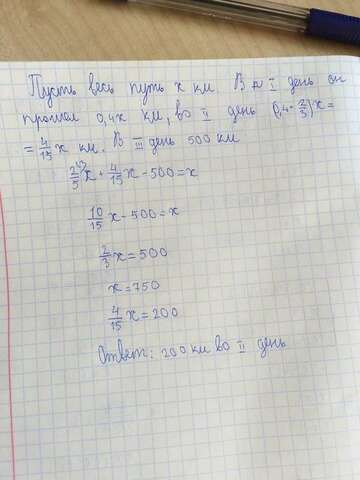 Пусть весь путь x км. В I день он
прошел 0,4x км, во II день (0,4·2/3)x =
= 4/15 x км. В III день 500 км
2/5 x + 4/15 x - 500 = x
10/15 x - 500 = x
2/3 x = 500
x = 750
4/15 x = 200
Ответ: 200 км во II день